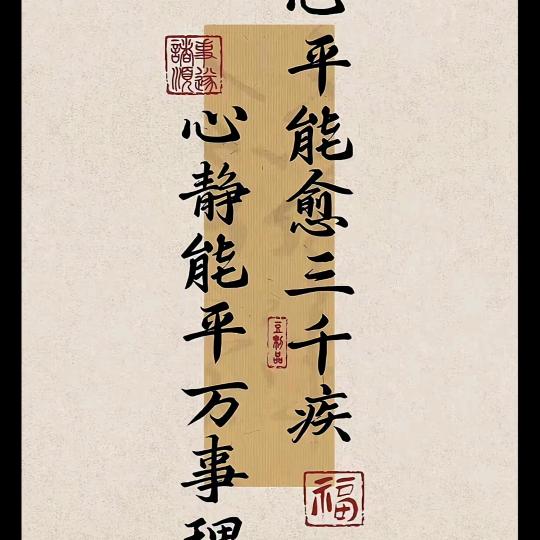 心平能愈三千疾
心静能平万事理
諸事順遂
豆制品
福